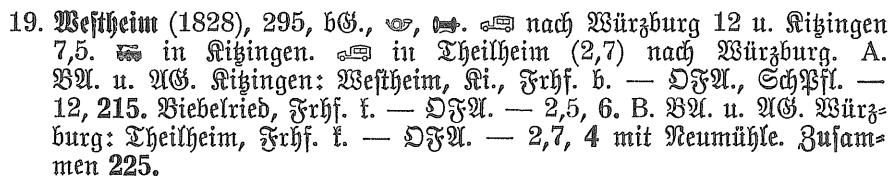 19. Westheim (1828), 295, bG., nach Würzburg 12 u. Kitzingen
7,5. in Kitzingen. in Theilheim (2,7) nach Würzburg. A.
BA. u. AG. Kitzingen: Westheim, Ki., Frhf. b. — OFA., SchPfl. —
12, 215. Biebelried, Frhf. k. — OFA. — 2,5, 6. B. BA. u. AG. Würz-
burg: Theilheim, Frhf. k. — OFA. — 2,7, 4 mit Neumühle. Zusam-
men 225.